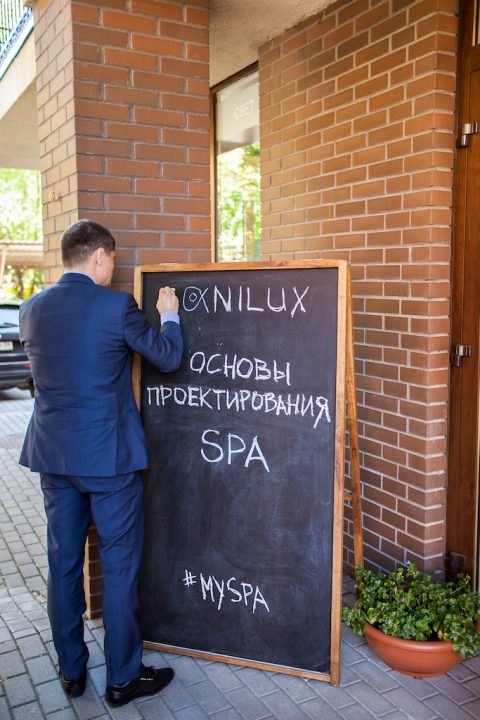 СВЕТ
αNILUX
ОСНОВЫ
ПРОЕКТИРОВАНИЯ
SPA
#MYSPA